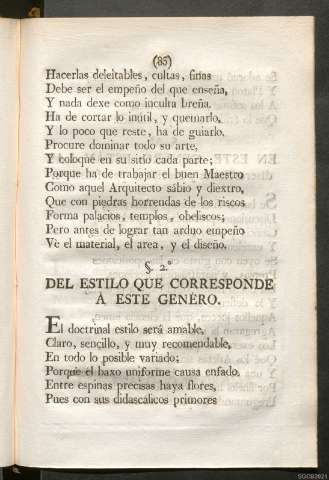 (83)
Hacerlas deleitables, cultas, finas
Debe ser el empeño del que enseña,
Y nada dexe como inculta breña.
Ha de cortar lo inútil, y quemarlo,
Y lo poco que reste, ha de guiarlo.
Procure dominar todo su arte,
Y coloque en su sitio cada parte;
Porque ha de trabajar el buen Maestro
Como aquel Arquitecto sábio y diextro,
Que con piedras horrendas de los riscos
Forma palacios, templos, obeliscos;
Pero antes de lograr tan arduo empeño
Ve el material, el area, y el diseño.
§. 2.º
DEL ESTILO QUE CORRESPONDE
Á ESTE GENERO.
El doctrinal estilo será amable,
Claro, sencillo, y muy recomendable,
En todo lo posible variado;
Porque el baxo uniforme causa enfado.
Entre espinas precisas haya flores,
Pues con sus didascálicos primores